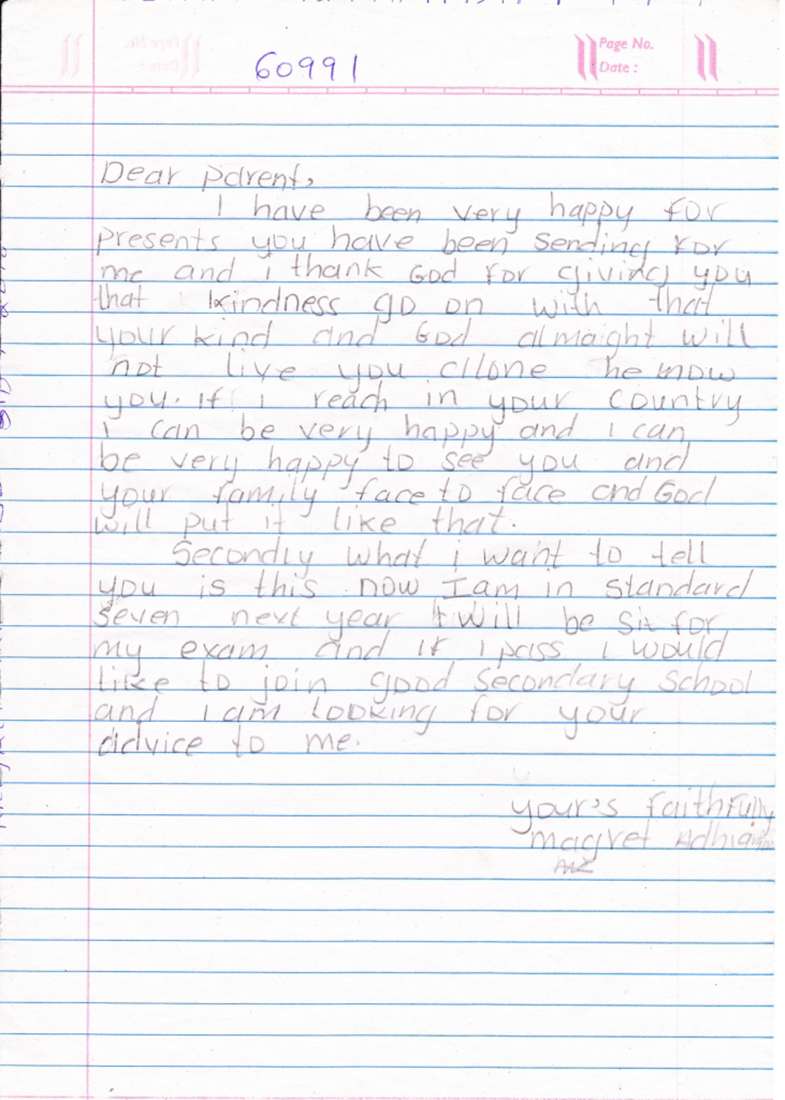 60991
Page No.
Date :
Dear parent,
I have been very happy for
presents you have been sending for
me and i thank God for giving you
that kindness go on with that
your kind and God almaight will
not live you allone he mow
you. If i reach in your country
i can be very happy and i can
be very happy to see you and
your family face to face and God
will put it like that.
Secondly what i want to tell
you is this now I am in standard
seven next year I will be sit for
my exam and if i pass i would
like to join good secondary school
and i am looking for your
advice to me.
your's faithfully
magret Adhiam